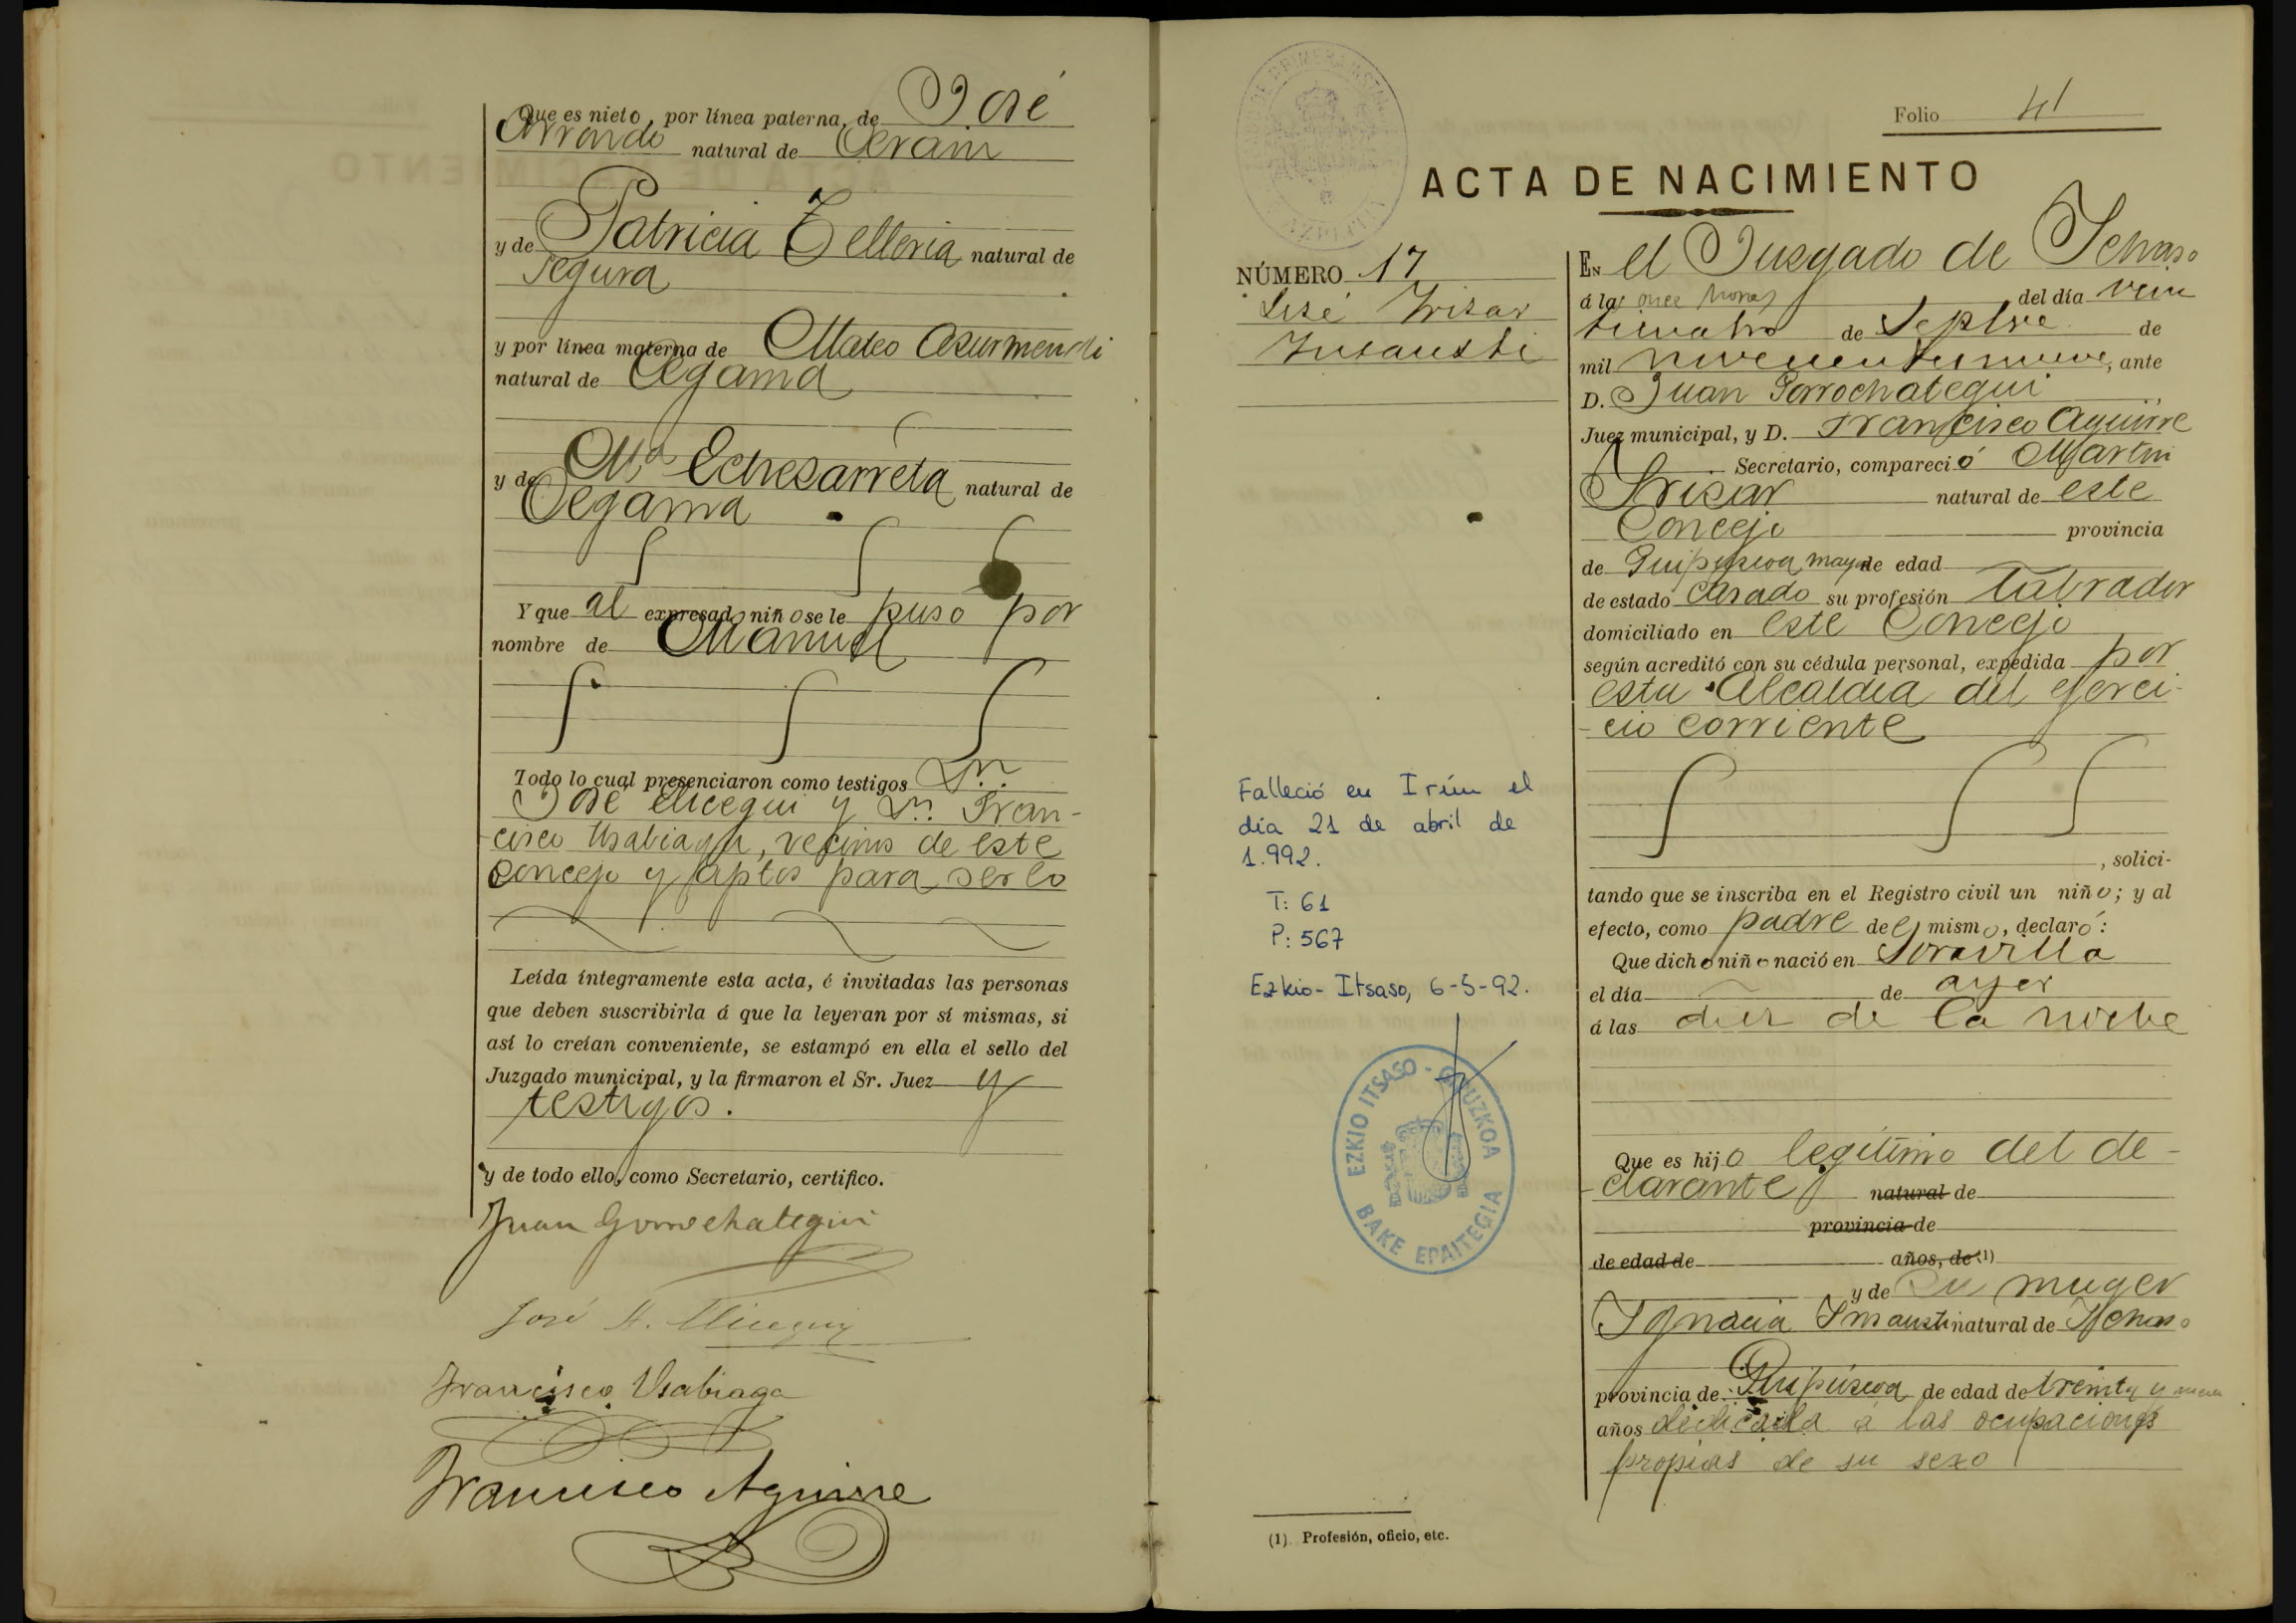 Que es nieto, por línea paterna, de José
Arrondo natural de Cerain
y de Patricia Telleria natural de
Segura
y por línea materna de Mateo Asurmendi
natural de Cegama
y de Mª Echesarreta natural de
Cegama
Y que al expresado niño se le puso por
nombre de Manuel
Todo lo cual presenciaron como testigos Dn.
José Elicegui y Dn. Fran-
-cisco Usabiaga, vecinos de este
Concejo y aptos para serlo
Leída íntegramente esta acta, é invitadas las personas
que deben suscribirla á que la leyeran por sí mismas, si
así lo creían conveniente, se estampó en ella el sello del
Juzgado municipal, y la firmaron el Sr. Juez y
testigos.
y de todo ello, como Secretario, certifico.
Juan Gorrochategui
José A. Elicegui
Francisco Usabiaga
Francisco Aguirre
Folio 41
ACTA DE NACIMIENTO
NÚMERO 17
José Irizar
Insausti
Falleció en Irún el
día 21 de abril de
1.992.
T: 61
P: 567
Ezkio-Itsaso, 6-5-92.
EZKIO ITSASO - GIPUZKOA
BAKE EPAITEGIA
(1) Profesión, oficio, etc.
En el Jusgado de Ichaso
á las once horas del día vein
ticuatro de Septbre de
mil novecientos nueve, ante
D. Juan Gorrochategui
Juez municipal, y D. Francisco Aguirre
Secretario, compareció Martin
Irisar natural de este
Concejo provincia
de Guipúscoa mayor de edad
de estado casado su profesión labrador
domiciliado en este Concejo
según acreditó con su cédula personal, expedida por
esta Alcaldia del ejerci-
-cio corriente
, solici-
tando que se inscriba en el Registro civil un niño; y al
efecto, como padre del mismo, declaró:
Que dicho niño nació en Soravilla
el día de ayer
á las diez de la noche
Que es hijo legítimo del de-
-clarante natural de
provincia de
de edad de años, de (1)
y de su muger
Ignacia Insausti natural de Ichaso
provincia de Guipúscoa de edad de treinta y nueve
años dedicada á las ocupaciones
propias de su sexo